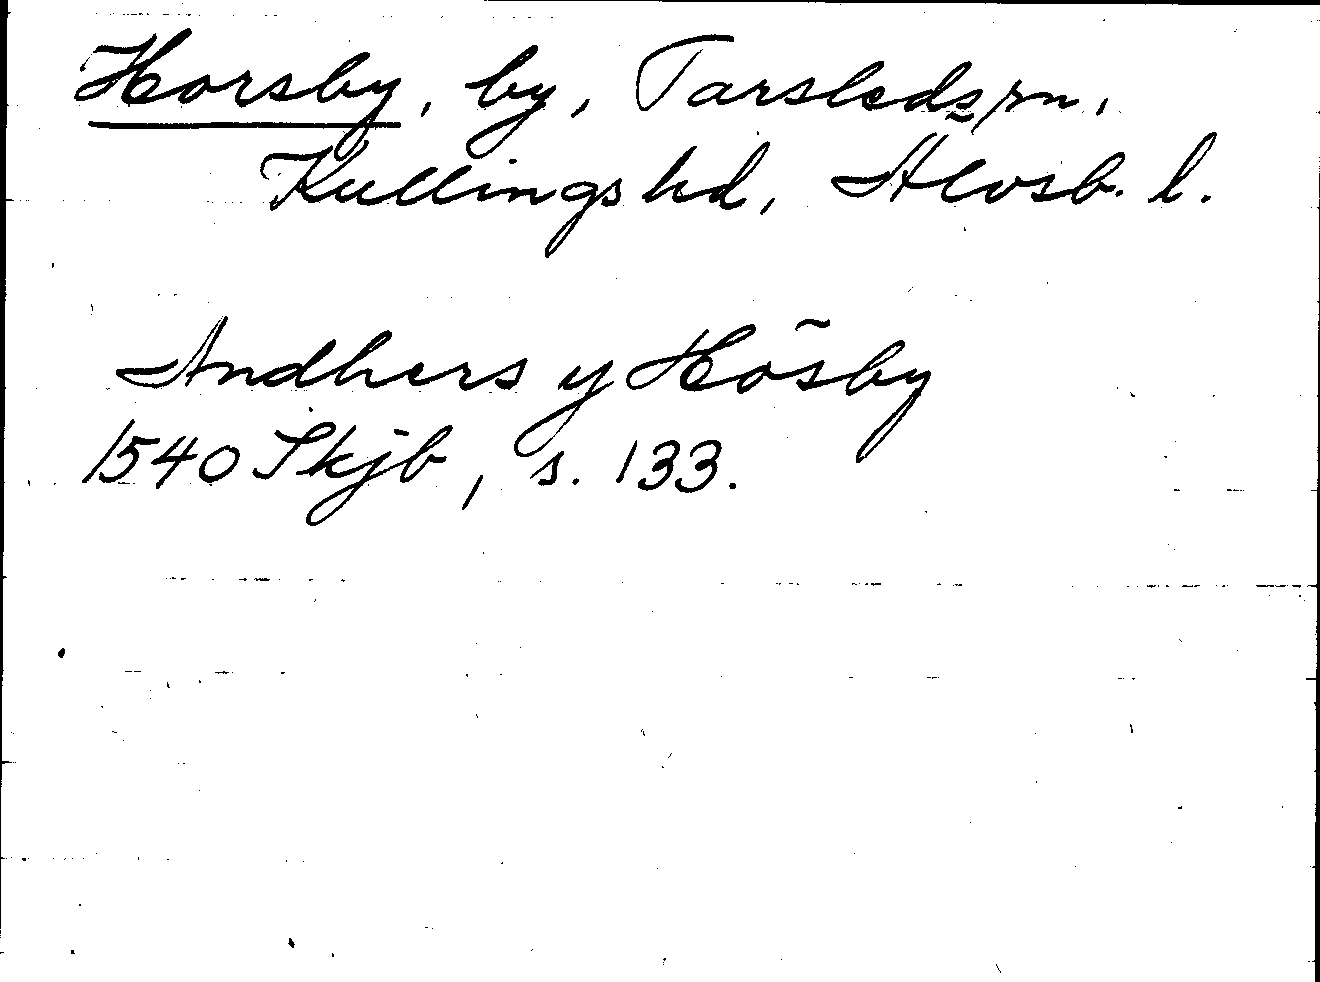 Horsby, by, Tarsleds sn,
Kullings hd, Älvsb. l.
Andhers y Hõsby
1540 Skjb, s. 133.